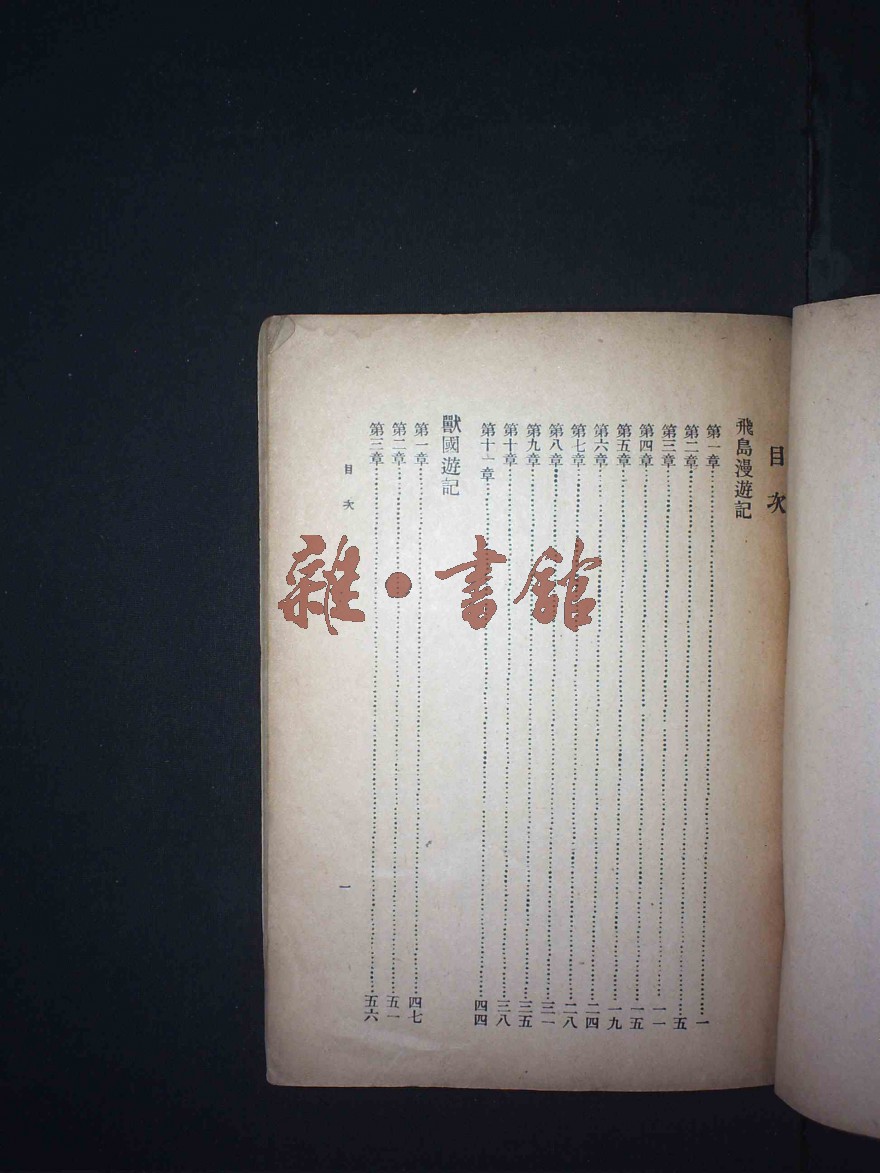 目次
飛島漫遊記
第一章……一
第二章……五
第三章……一一
第四章……一五
第五章……一九
第六章……二四
第七章……二八
第八章……三一
第九章……三五
第十章……三八
第十一章……四四
獸國遊記
第一章……四七
第二章……五一
第三章……五六
目次
一
雜·書館